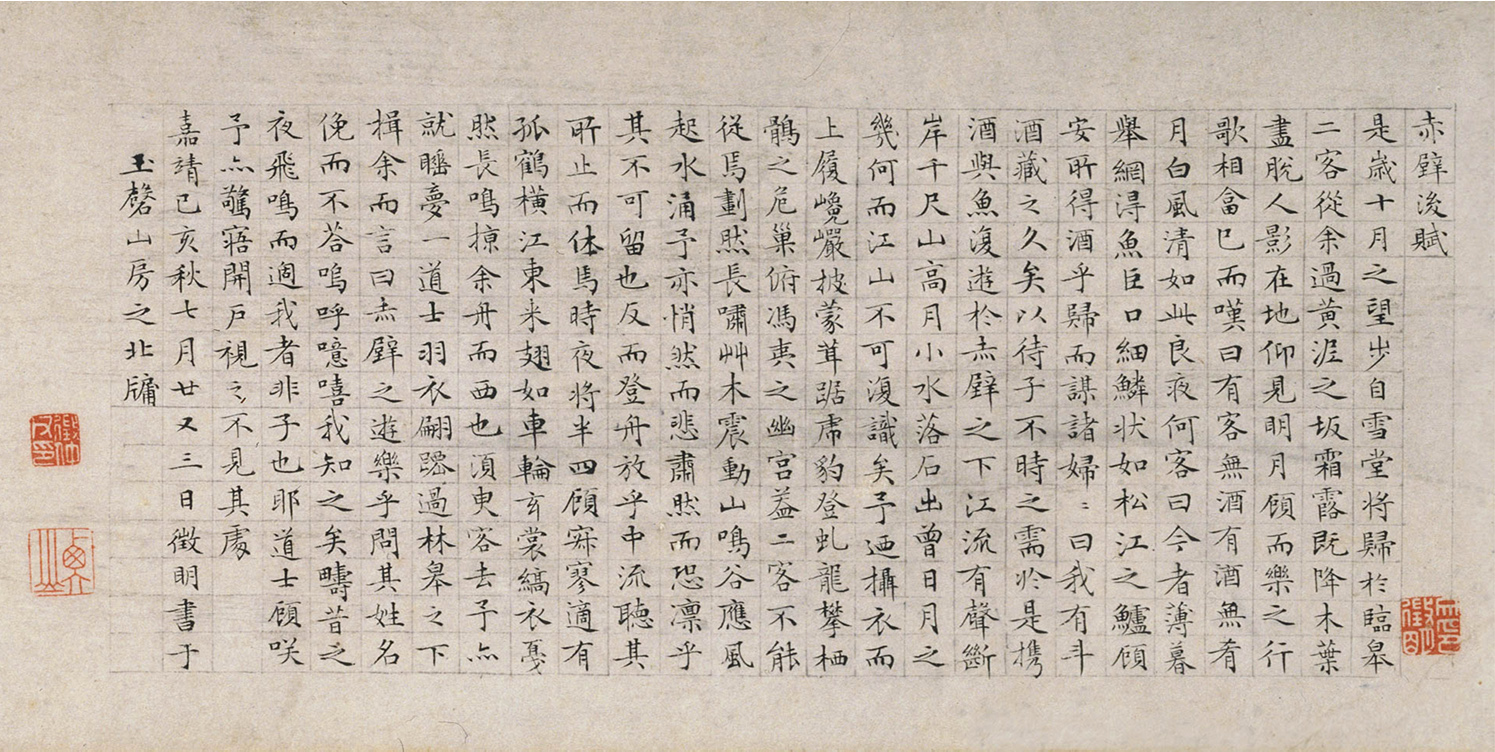 赤壁後賦
是歳十月之望步自雪堂将歸於臨皋
二客從余過黄泥之坂霜露既降木葉
盡脫人影在地仰見明月顧而樂之行
歌相畣巳而嘆曰有客無酒有酒無肴
月白風清如此良夜何客曰今者薄暮
舉網淂魚巨口細鱗状如松江之鱸顧
安所得酒乎歸而謀諸婦〻曰我有斗
酒藏之久矣以待子不時之需於是携
酒與魚復遊於赤壁之下江流有聲斷
岸千尺山高月小水落石出曾日月之
幾何而江山不可復識矣予迺攝衣而
上履巉巖披蒙茸踞虎豹登虬龍攀栖
鶻之危巢俯馮夷之幽宫葢二客不能
從焉劃然長嘯艸木震動山鳴谷應風
起水涌予亦悄然而悲肅然而恐凛乎
其不可留也反而登舟放乎中流聽其
所止而休焉時夜将半四顧寂寥適有
孤鶴横江東来翅如車輪玄裳縞衣戞
然長鳴掠余舟而西也湏臾客去予亦
就睡夢一道士羽衣翩躚過林皋之下
揖余而言曰赤壁之遊樂乎問其姓名
俛而不荅嗚呼噫嘻我知之矣疇昔之
夜飛鳴而過我者非子也耶道士顧咲
予亦驚寤開戸視之不見其處
嘉靖己亥秋七月廿又三日徴明書于
玉磬山房之北牖